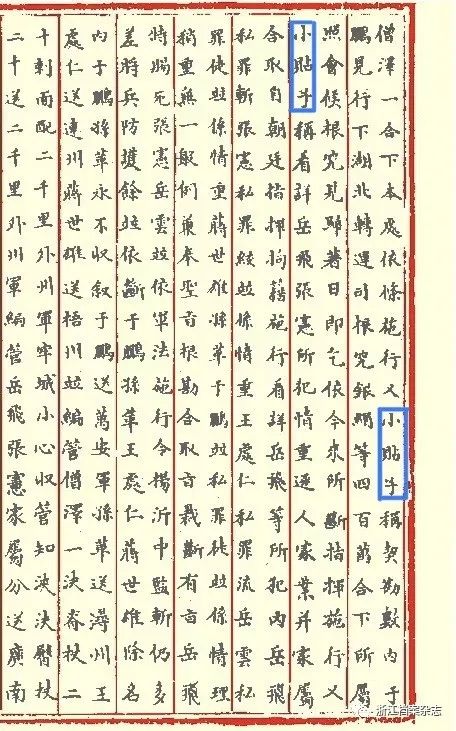 僧澤一合下本處依條施行又小貼子稱契勘數內于
鵬見行下湖北轉運司根究銀絹等四百萬合下所屬
照會候根究見歸著日即乞依今來所斷指揮施行又
小貼子稱看詳岳飛張憲所犯情重逆人家業并家屬
合取自朝廷指揮拘籍施行看詳岳飛等所犯內岳飛
私罪斬張憲私罪絞並係情重王處仁私罪流岳雲私
罪徒並係情重蔣世雄孫革于鵬並私罪徒並係情理
稍重無一般例兼奉聖旨根勘合取旨裁斷有旨岳飛
特賜死張憲岳雲並依軍法施行令楊沂中監斬仍多
差將兵防護餘並依斷于鵬孫革王處仁蔣世雄除名
內于鵬孫革永不收敘于鵬送萬安軍孫革送潯州王
處仁送連州蔣世雄送梧州並編管僧澤一決脊杖二
十刺面配二千里外州軍牢城小心收管知浹決臀杖
二十送二千里外州軍編管岳飛張憲家屬分送廣南
浙江档案杂志